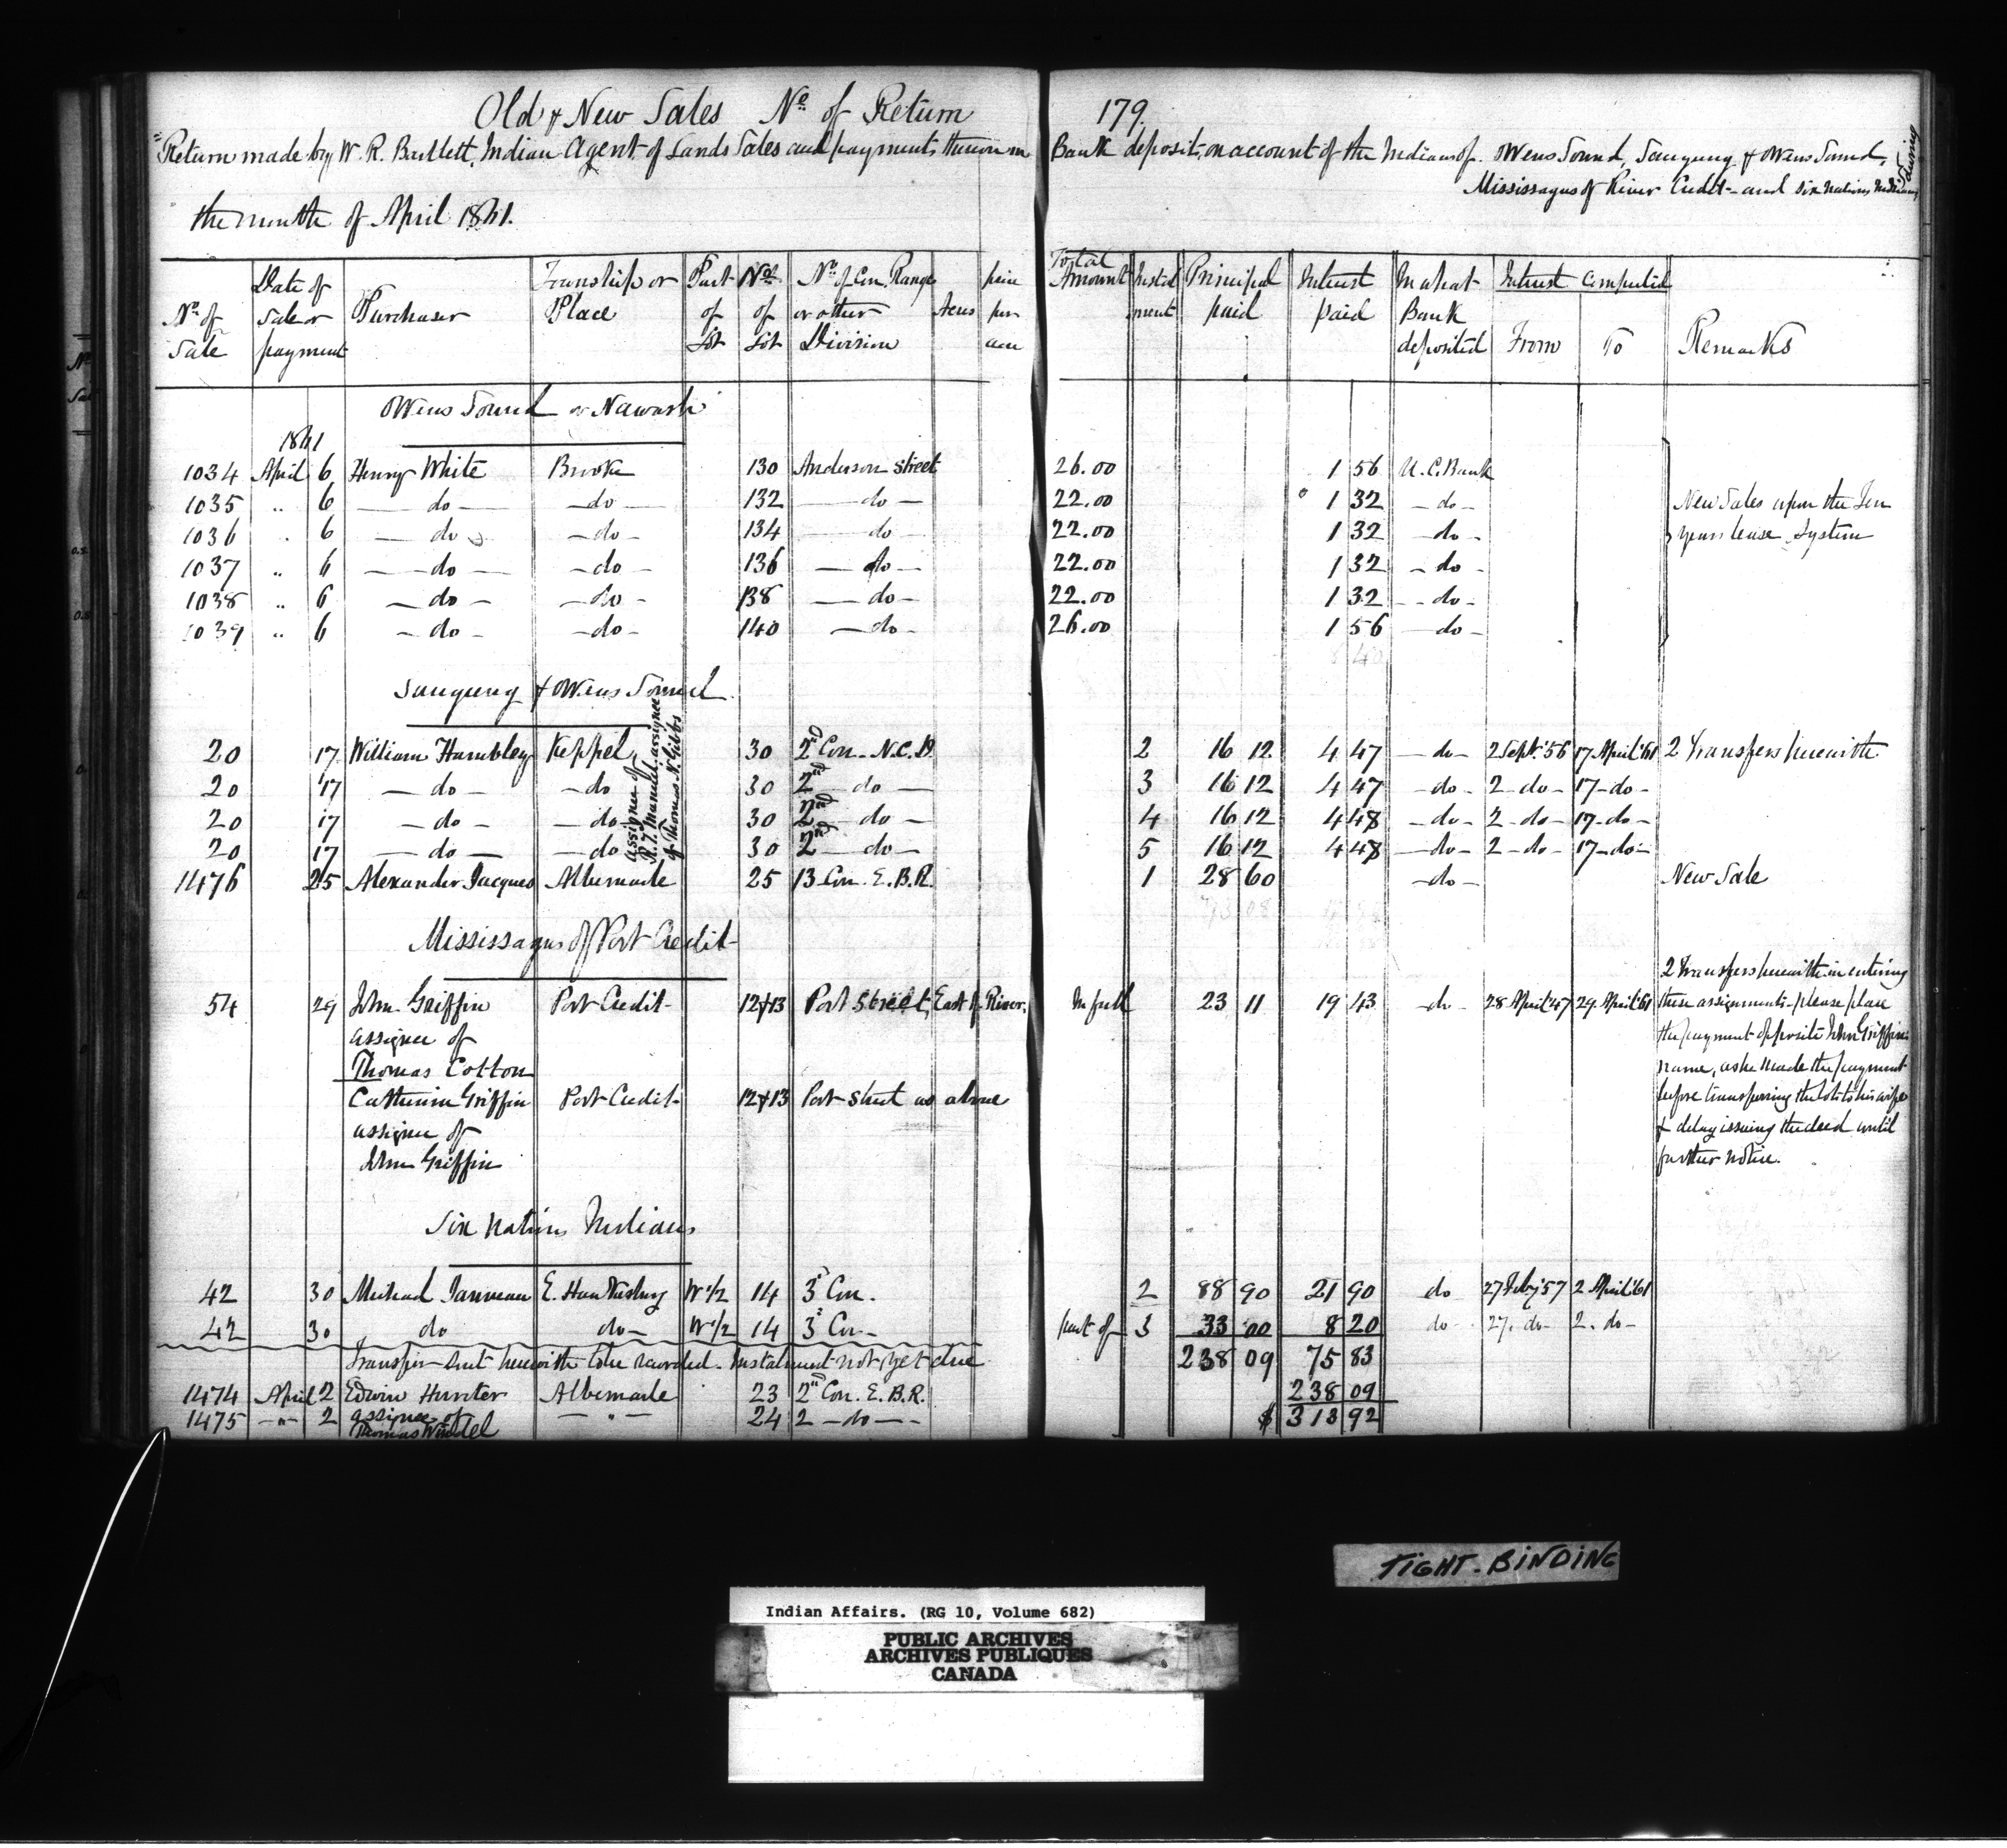 Old & New Sales No of Return 179.
Return made by W. R. Bartlett, Indian Agent of Lands Sales and payments thereon in Bank deposit, on account of the Indians of Owens Sound, Saugeeng & Owens Sound,
Mississagus of River Credit - and Six Nations Indians, during
the month of April 1861.
No of Sale | Date of Sale or payment | Purchaser | Township or Place | Part of Lot | No of Lot | No of Con, Range or other Division | Acres | price per acre | Total Amount | Instalment | Principal paid | Interest paid | In what Bank deposited | Interest Computed From | To | Remarks
Owens Sound or Nawash
1861
1034 April 6 Henry White Brooke 130 Anderson Street 26.00 1 56 U.C. Bank
1035 " 6 — do — — do — 132 — do — 22.00 1 32 — do —
1036 " 6 — do — — do — 134 — do — 22.00 1 32 — do —
1037 " 6 — do — — do — 136 — do — 22.00 1 32 — do —
1038 " 6 — do — — do — 138 — do — 22.00 1 32 — do —
1039 " 6 — do — — do — 140 — do — 26.00 1 56 — do —
New Sales upon the Ten
years lease system
8 40
Saugeeng & Owens Sound
20 17 William Hambley Keppel 30 2nd Con. N.C.D. 2 16 12 4 47 — do — 2 Sept. '56 17 April '61 2 Transfers herewith
20 17 — do — — do 30 2nd — do — 3 16 12 4 47 — do — 2 — do — 17 — do —
20 17 — do — — do 30 2nd — do — 4 16 12 4 48 — do — 2 — do — 17 — do —
20 17 — do — — do 30 2nd — do — 5 16 12 4 48 — do — 2 — do — 17 — do —
assignee of
R. T. Manuel assignee
of Thomas N. Gibbs
1476 25 Alexander Jacques Albemarle 25 13 Con. E.B.R. 1 28 60 — do — New Sale
Mississagus of Port Credit
54 29 John Griffin Port Credit 12&13 Port Street, East of River. In full 23 11 19 43 do — 28 April '47 29 April '61
assignee of
Thomas Cotton
Catherine Griffin Port Credit 12&13 Port Street as above
assignee of
John Griffin
2 Transfers herewith in entering
these assignments - please place
the payment opposite John Griffin's
name, as he made the payment
before transferring the lots to his wife
& delay issuing the deed until
further notice.
Six Nations Indians
42 30 Michael Janveau E. Hawkesbury W 1/2 14 3d Con. 2 88 90 21 90 do 27 Feby '57 2 April '61
42 30 do do — W 1/2 14 3d Con — part of 3 33 00 8 20 do 27. do — 2. do —
238 09 75 83
Transfer sent herewith to be recorded. Instalment not yet due
1474 April 2 Edwin Hunter Albemarle 23 2nd Con. E.B.R. 238 09
1475 — " — 2 assignee of — " — 24 2 — do — $ 313 92
Thomas
TIGHT-BINDING
Indian Affairs. (RG 10, Volume 682)
PUBLIC ARCHIVES
ARCHIVES PUBLIQUES
CANADA